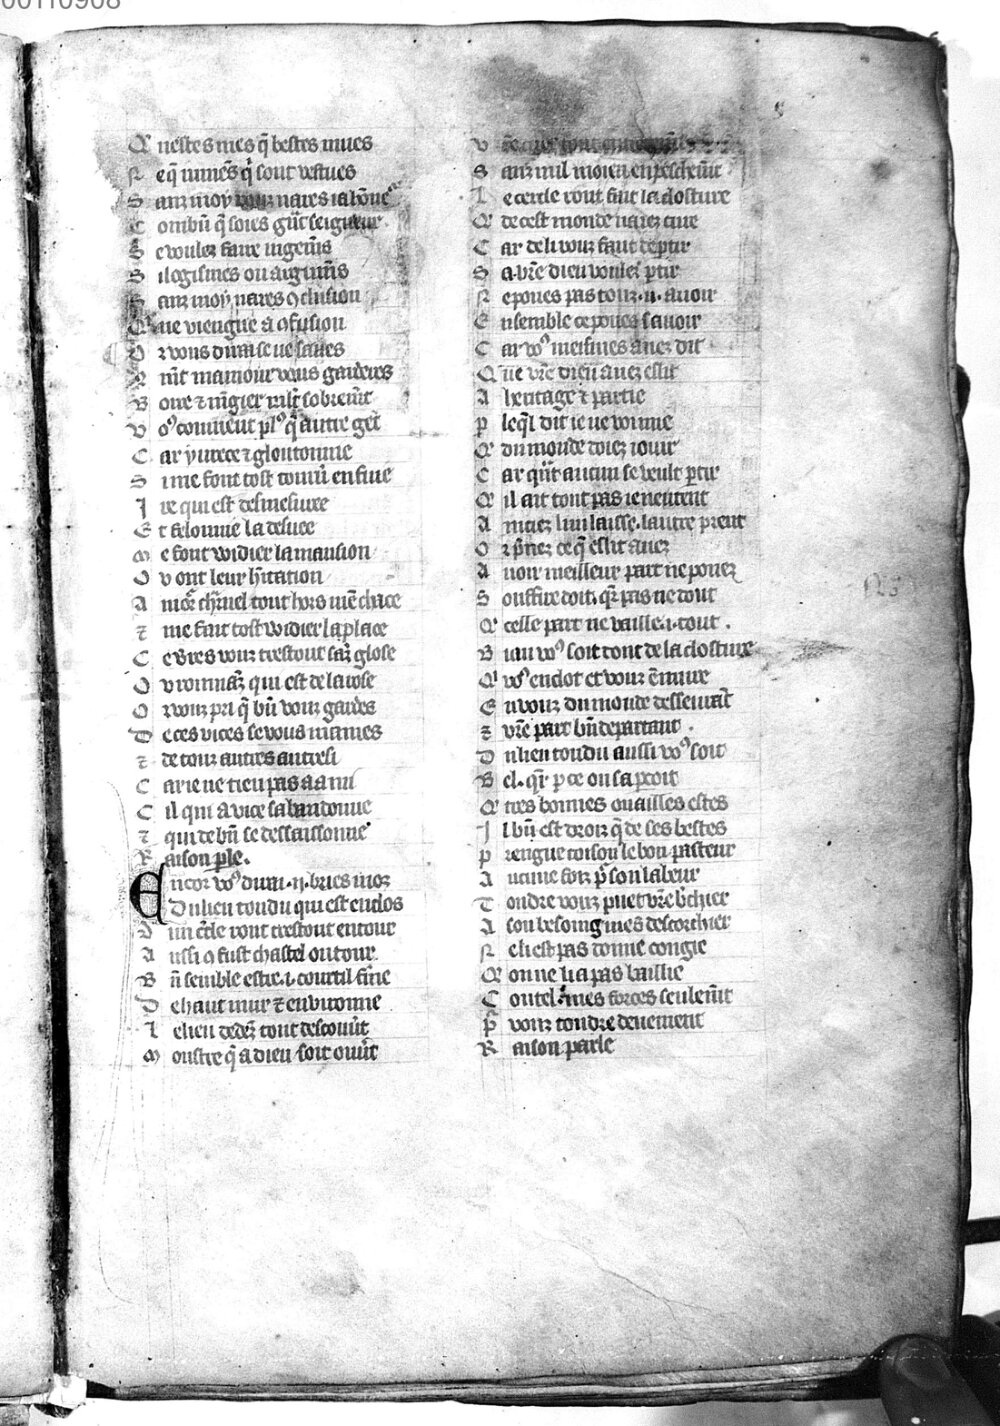 00110908
Q uestes mes q̃ bestes mues
N e q̃ nunes q̃ sont vestues
S anz moy vous nares ia bõne
C ombñ q̃ soies gñt seigneur
S e voulez faire iugem̃s
S ilogismes ou argum̃s
S anz moy nares ꝯclusion
Q ue viengne a ꝯfusion
O r vous dirai se ne saues
Q m̃t mamour vous garderes
B oire ⁊ mẽgier
V oꝰ conuient plꝰ q̃ autre get
C ar yurece ⁊ gloutonnie
S i me font tost tourñ en fuie
I re qui est desmesuree
E t felonnie la desuee
M e font widier la mansion
O u ont leur hĩtation
A mor̃ ch̃nel tout hors mẽ chace
⁊ me fait tost widier la place
C e vres vous trestout sãz glose
O u rommãz qui est de la rose
O r vous pri q̃ bñ vous gardes
D e ces vices se vous mames
⁊ de tous autres autresi
C ar ie ne tieu pas a ami
C il qui a vice sabandonne
⁊ qui de bñ se dessaisonne
R aison ple.
E ncor voꝰ dirai .ij. bries moz
Du lieu tondu qui est enclos
D un c̃cle ront trestout entour
A ussi ꝯ fust chastel ou tour
B ñ semble estre .i. courtil fine
D e haut mur ⁊ enuironne
L e lieu dedẽz tout descouũt
M oustre q̃ a dieu soit ouũt
S anz nul moien enpeschem̃t
L e cercle ront fait la closture
Q de cest monde narez cure
C ar de li vous faut deptir
S a vr̃e dieu voulez ptir
N e poues pas touz .ij. auoir
E nsemble ce poues sauoir
C ar voꝰ meismes auez dit
Q ue vr̃e dieu auez eslit
A heritage ⁊ partie
P leq̃l dit ie ne vou mie
Q du monde doiez iouir
C ar qñt aucun se veult ptir
Q il ait tout pas ie nentent
A mciez lun laisse. lautre prent
O r p̃nez ce q̃ eslit auez
A uoir meilleur part ne pouez
S ouffire doit. q̃r pas ne dout
Q celle part ne vaille .i. tout .
B iau voꝰ soit dont de la closture
Q voꝰ enclot et vous ẽmure
E n vous du monde desseurãt
⁊ vr̃e part bñ departant .
D u lieu tondu aussi voꝰ soit
B el. q̃r p ce on saproit
Q tres bonnes ouailles estes
I l bñ est droiz q̃ de ses bestes
P rengue toison le bon pasteur
A ucune foiz p̃ son labeur
T ondre vous puet vr̃e b̃chier
A son besoing mes descorchier
N e li est pas donne congie
Q on ne li a pas baillie
C outel. mes forces seulem̃t
P̃ vous tondre deuement
R aison parle